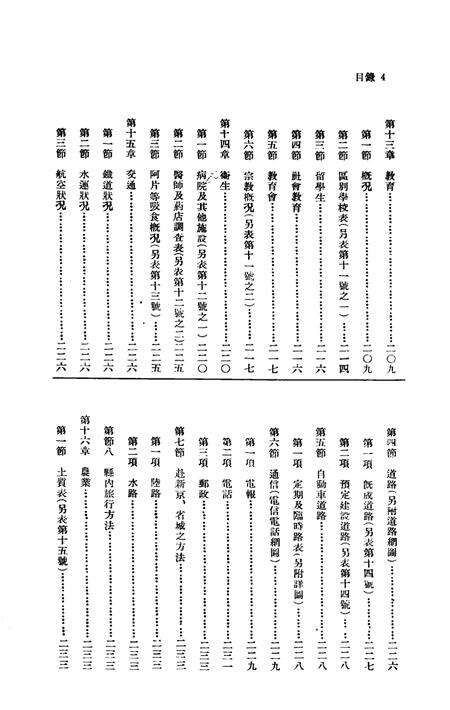 目錄 4
第十三章 教育……二〇九
第一節 概况……二〇九
第二節 區別學校表(另表第十一號之一)……二一四
第三節 留學生……二一六
第四節 社會教育……二一六
第五節 教育會……二一七
第六節 宗教概况(另表第十一號之二)……二一七
第十四章 衞生……二二〇
第一節 病院及其他施設(另表第十二號之一)二二〇
第二節 醫師及葯店調查表(另表第十二號之二)二二五
第三節 阿片等吸食概况(另表第十三號)……二二五
第十五章 交通……二二六
第一節 鐵道狀况……二二六
第二節 水運狀况……二二六
第三節 航空狀况……二二六
第四節 道路(另附道路網圖)……二二六
第一項 既成道路(另表第十四號)……二二七
第二項 預定建設道路(另表第十四號)……二二八
第五節 自動車道路……二二八
第一項 定期及臨時路表(另附詳圖)……二二八
第六節 通信(電信電話網圖)……二二九
第一項 電報……二二九
第二項 電話……二三一
第三項 郵政……二三三
第七節 赴新京、省城之方法……二三三
第一項 陸路……二三三
第二項 水路……二三三
第節八 縣內旅行方法……二三三
第十六章 農業……二三三
第一節 土質表(另表第十五號)……二三三